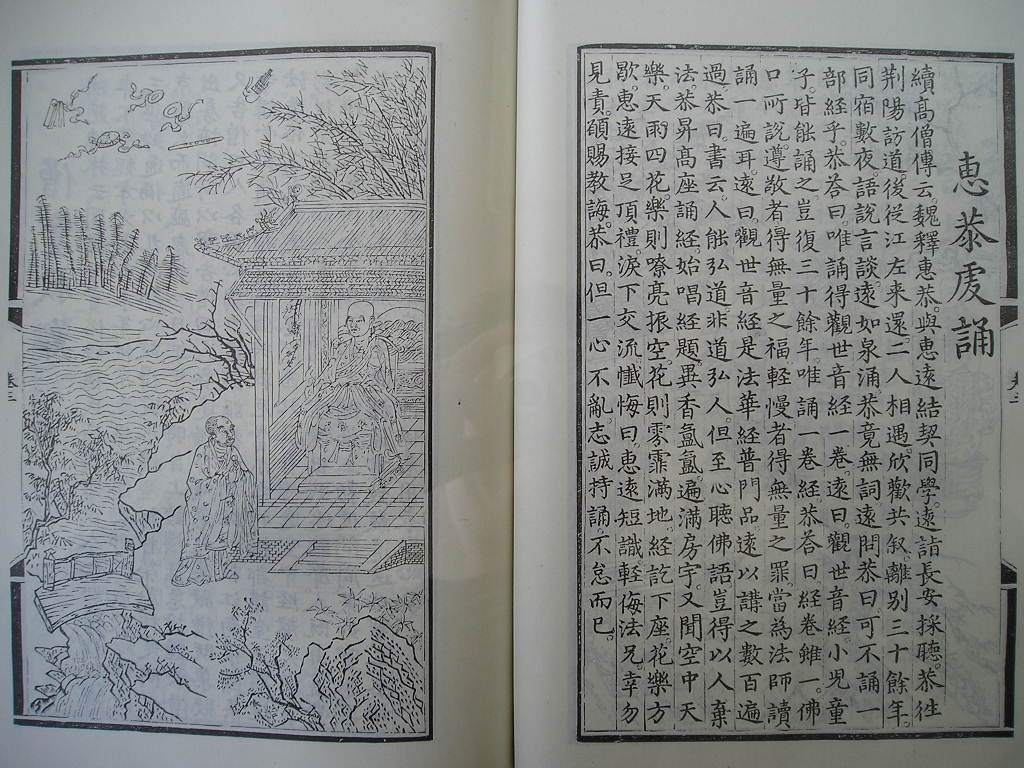 惠恭虔誦
續高僧傳云。魏釋惠恭。與惠遠結契同學。遠詣長安採聽。恭往
荆陽訪道。後從江左來還。二人相遇。欣歡共叙。離別三十餘年。
同宿數夜。語說言談。遠如泉涌。恭竟無詞。遠問恭曰。可不誦一
部經乎。恭荅曰。唯誦得觀世音經一卷。遠曰。觀世音經。小兒童
子。皆能誦之。豈復三十餘年。唯誦一卷經。恭荅曰。經卷雖一。佛
口所說。遵敬者得無量之福。輕慢者得無量之罪。當為法師讀
誦一遍耳。遠曰。觀世音經。是法華經普門品。遠以講之數百遍
過。恭曰。書云。人能弘道。非道弘人。但至心聽佛語。豈得以人棄
法。恭昇髙座誦經。始唱經題。異香氤氳。遍滿房宇。又聞空中天
樂。天雨四花。樂則嘹亮振空。花則雰霏滿地。經訖下座。花樂方
歇。惠遠接足頂禮。淚下交流。懺悔曰。惠遠短識輕侮法兄。幸勿
見責。頋賜教誨。恭曰。但一心不亂。志誠持誦。不怠而已。
卷三